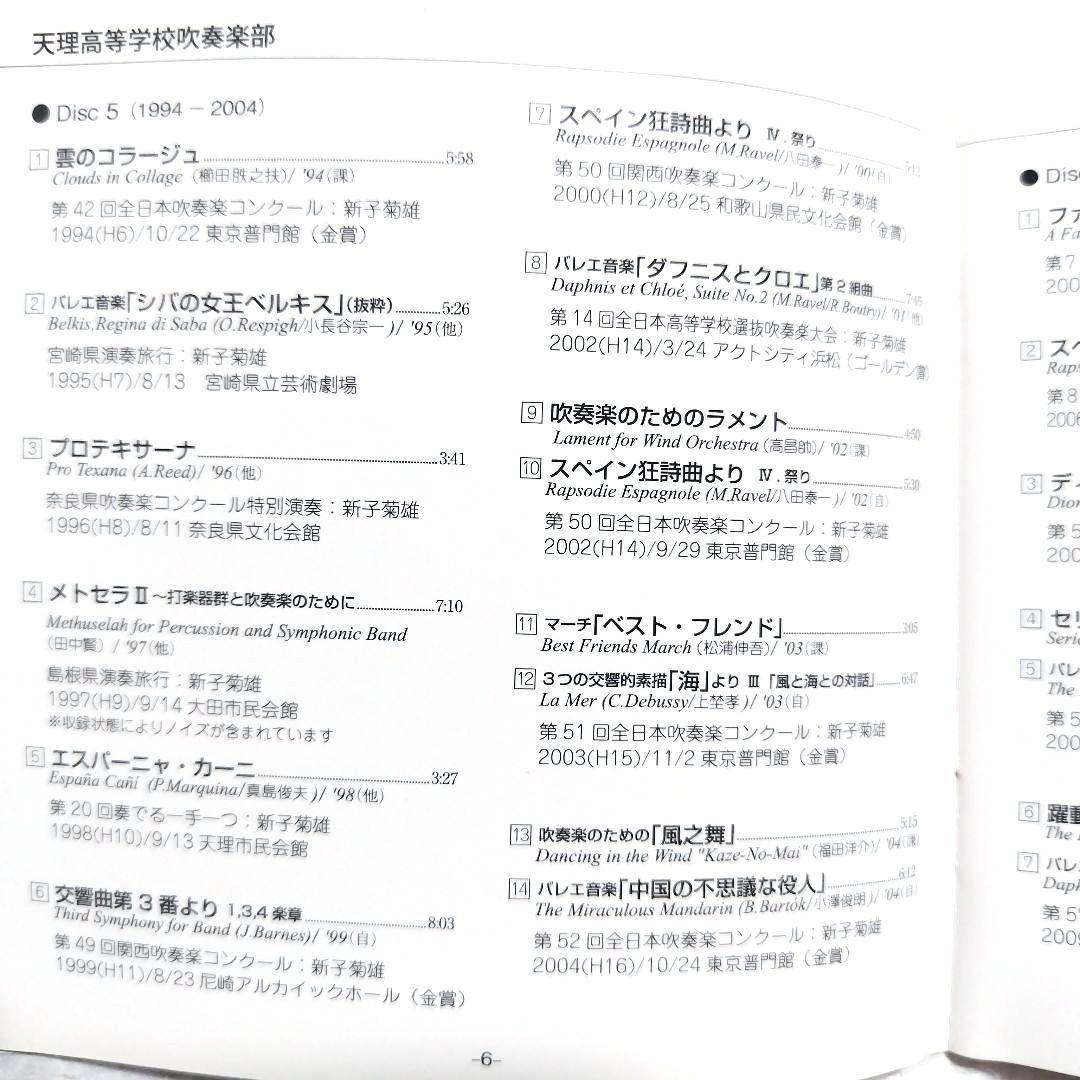 天理高等学校吹奏楽部
● Disc 5 (1994 − 2004)
1 雲のコラージュ 5:58
Clouds in Collage (櫛田胅之扶)/ '94(課)
第42回全日本吹奏楽コンクール：新子菊雄
1994(H6)/10/22 東京普門館（金賞）
2 バレエ音楽「シバの女王ベルキス」(抜粋) 5:26
Belkis,Regina di Saba (O.Respigh/小長谷宗一)/ '95(他)
宮崎県演奏旅行：新子菊雄
1995(H7)/8/13 宮崎県立芸術劇場
3 プロテキサーナ 3:41
Pro Texana (A.Reed)/ '96(他)
奈良県吹奏楽コンクール特別演奏：新子菊雄
1996(H8)/8/11 奈良県文化会館
4 メトセラⅡ～打楽器群と吹奏楽のために 7:10
Methuselah for Percussion and Symphonic Band
(田中賢) / '97(他)
島根県演奏旅行：新子菊雄
1997(H9)/9/14 大田市民会館
※収録状態によりノイズが含まれています
5 エスパーニャ・カーニ 3:27
España Cañi (P.Marquina/真島俊夫)/ '98(他)
第20回奏でる一手一つ：新子菊雄
1998(H10)/9/13 天理市民会館
6 交響曲第3番より 1,3,4楽章 8:03
Third Symphony for Band (J.Barnes)/ '99(自)
第49回関西吹奏楽コンクール：新子菊雄
1999(H11)/8/23 尼崎アルカイックホール（金賞）
7 スペイン狂詩曲より Ⅳ.祭り 5:12
Rapsodie Espagnole (M.Ravel/八田泰一)/ '00(自)
第50回関西吹奏楽コンクール：新子菊雄
2000(H12)/8/25 和歌山県民文化会館（金賞）
8 バレエ音楽「ダフニスとクロエ」第2組曲 7:45
Daphnis et Chloé, Suite No.2 (M.Ravel/R.Boutry)/ '01(他)
第14回全日本高等学校選抜吹奏楽大会：新子菊雄
2002(H14)/3/24 アクトシティ浜松（ゴールデン賞）
9 吹奏楽のためのラメント 4:50
Lament for Wind Orchestra (高昌帥)/ '02(課)
10 スペイン狂詩曲より Ⅳ.祭り 5:30
Rapsodie Espagnole (M.Ravel/八田泰一)/ '02(自)
第50回全日本吹奏楽コンクール：新子菊雄
2002(H14)/9/29 東京普門館（金賞）
11 マーチ「ベスト・フレンド」 3:05
Best Friends March (松浦伸吾)/ '03(課)
12 3つの交響的素描「海」より Ⅲ「風と海との対話」 6:47
La Mer (C.Debussy/上埜孝)/ '03(自)
第51回全日本吹奏楽コンクール：新子菊雄
2003(H15)/11/2 東京普門館（金賞）
13 吹奏楽のための「風之舞」 5:15
Dancing in the Wind "Kaze-No-Mai" (福田洋介)/ '04(課)
14 バレエ音楽「中国の不思議な役人」 6:12
The Miraculous Mandarin (B.Bartók/小澤俊朗)/ '04(自)
第52回全日本吹奏楽コンクール：新子菊雄
2004(H16)/10/24 東京普門館（金賞）
–6–
● Disc
1 ファ
A Fa
第7
200
2 スペ
Raps
第8
2006
3 ディ
Dion
第5
200
4 セリ
Seri
5 バレ
The
第5
200
6 躍動
The
7 バレ
Daph
第5
2009